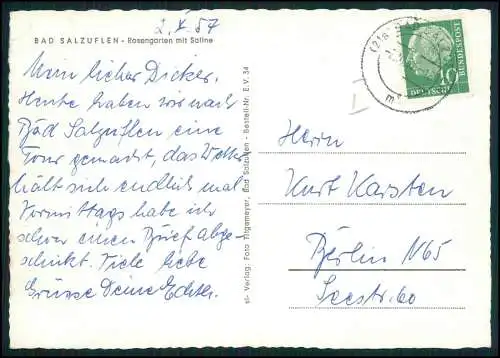 2. X. 57
BAD SALZUFLEN - Rosengarten mit Saline
Mein lieber Dicker.
Heute haben wir nach
Bad Salzuflen eine
Tour gemacht, das Wetter
hält sich endlich mal
Vormittags habe ich
schon einen Brief abge-
schickt. Viele liebe
Grüsse Deine
st- Verlag: Foto Tilgemeyer, Bad Salzuflen - Bestell-Nr. E.V. 34
10
DEUTSCHE
BUNDESPOST
Herrn
Kurt Karsten
Berlin N65
Seestr. 60